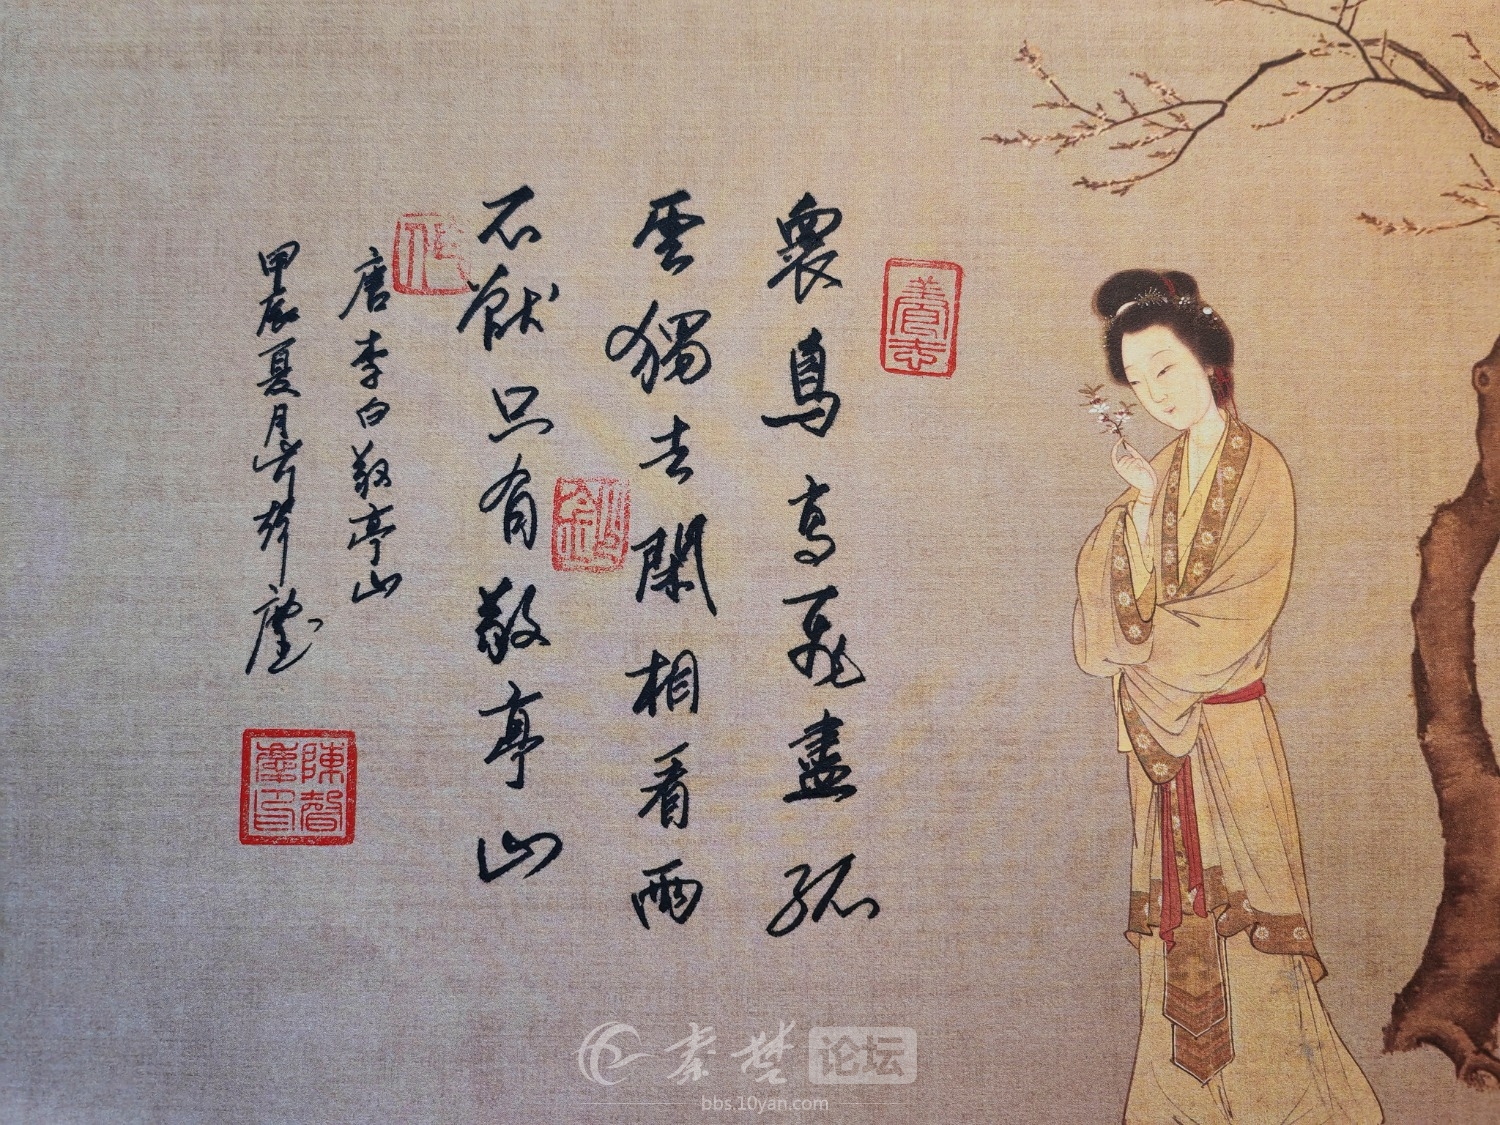 眾鳥高飛盡孤
雲獨去閑相看兩
不猒只有敬亭山
唐李白敬亭山
甲辰夏月
秦楚论坛
bbs.10yan.com